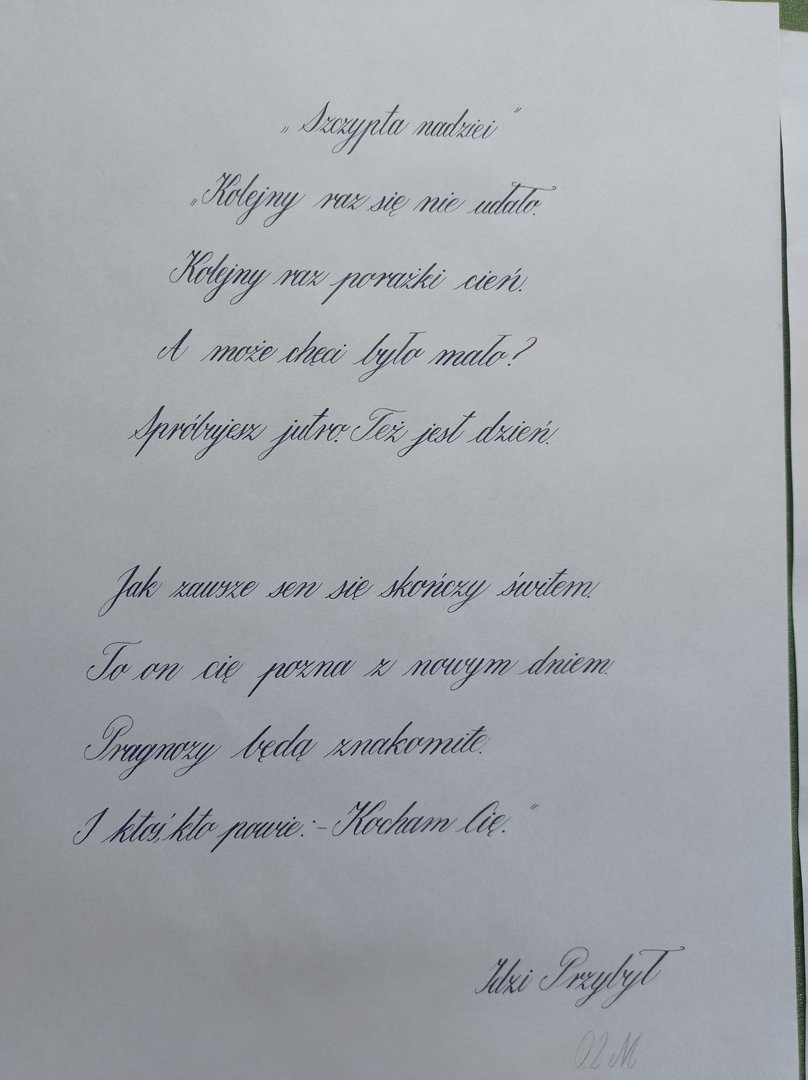 „Szczypta nadziei”
„Kolejny raz się nie udało.
Kolejny raz porażki cień.
A może chęci było mało?
Spróbujesz jutro. Też jest dzień.
Jak zawsze sen się skończy świtem.
To on cię pozna z nowym dniem.
Pragnozy będą znakomite.
I ktoś, kto powie: - Kocham Cię.”
Idzi Przybył
02M